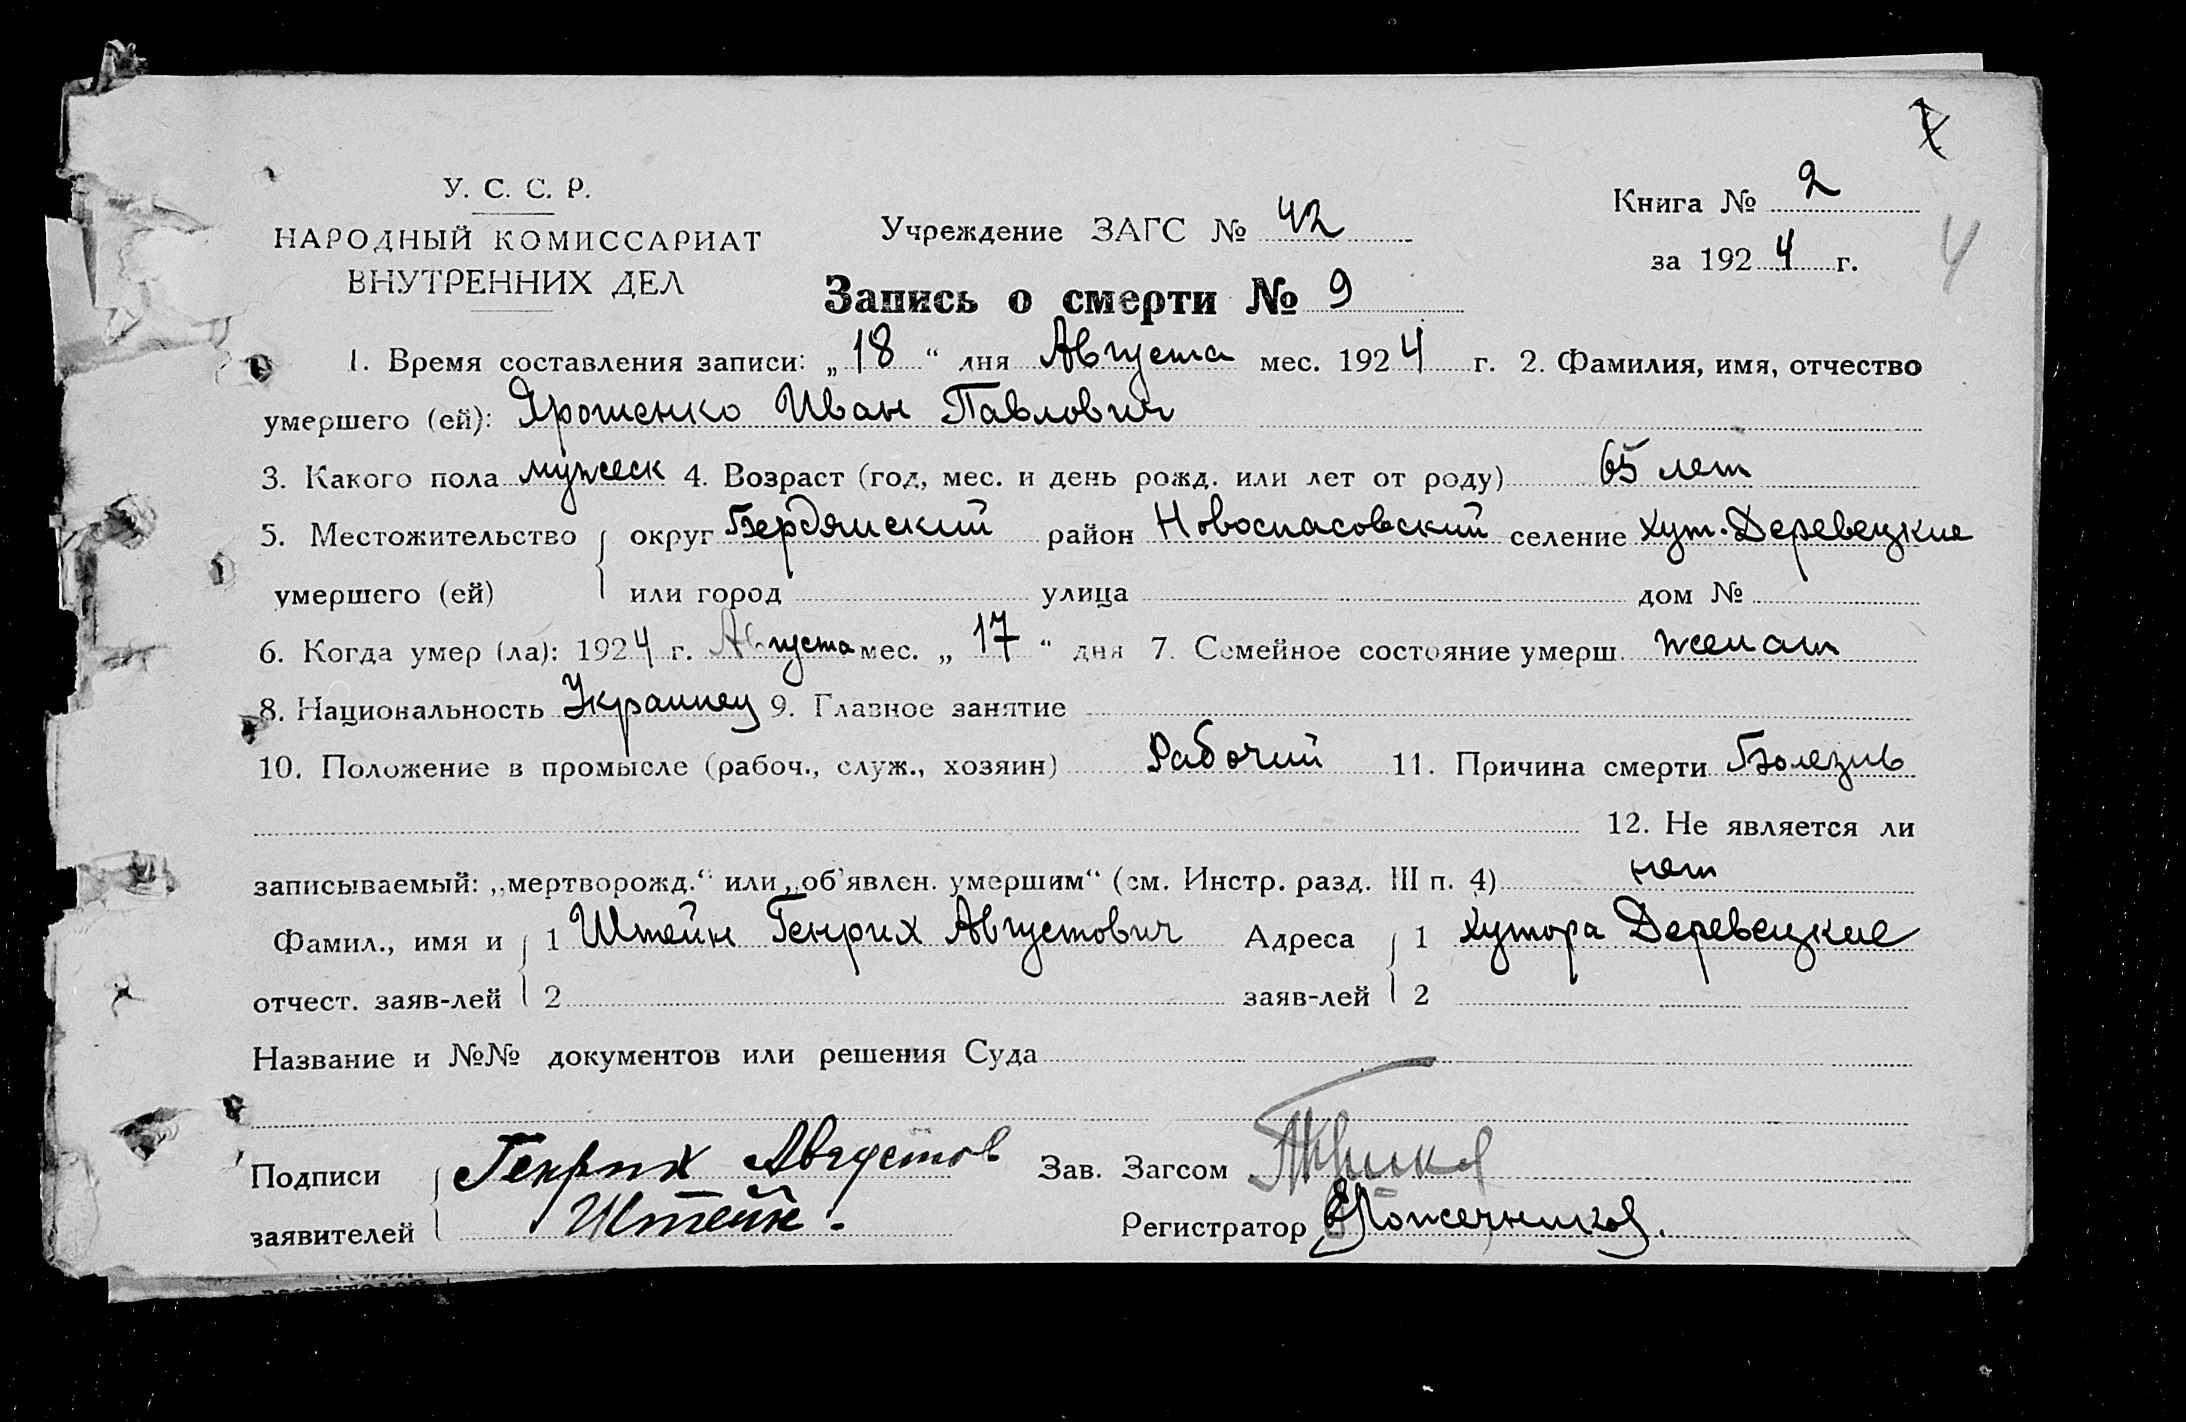 У. С. С. Р.
НАРОДНЫЙ КОМИССАРИАТ
ВНУТРЕННИХ ДЕЛ
Учреждение ЗАГС № 42
Книга № 2
за 1924 г.
4
Запись о смерти № 9
1. Время составления записи: „18“ дня Августа мес. 1924 г. 2. Фамилия, имя, отчество
умершего (ей): Ярошенко Иван Павлович
3. Какого пола мужеск 4. Возраст (год, мес. и день рожд. или лет от роду) 65 лет
5. Местожительство округ Бердянский район Новоспасовский селение хут. Деревецкие
умершего (ей) или город улица дом №
6. Когда умер (ла): 1924 г. Августа мес. „17“ дня 7. Семейное состояние умерш. женат
8. Национальность Украинец 9. Главное занятие
10. Положение в промысле (рабоч., служ., хозяин) Рабочий 11. Причина смерти Болезнь
12. Не является ли
записываемый: „мертворожд.“ или „об’явлен. умершим“ (см. Инстр. разд. III п. 4) нет
Фамил., имя и 1 Штейн Генрих Августович Адреса 1 хутора Деревецкие
отчест. заяв-лей 2 заяв-лей 2
Название и №№ документов или решения Суда
Подписи Генрих Августов Зав. Загсом
заявителей Штейн. Регистратор